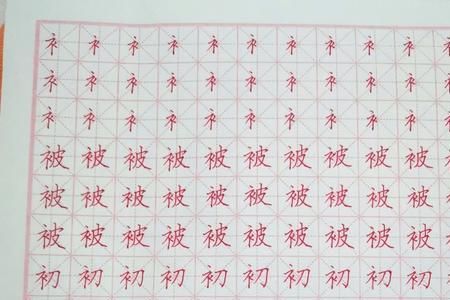 衤 衤 衤 衤 衤 衤 衤 衤 衤 衤 衤
衤 衤 衤 衤 衤 衤 衤 衤 衤 衤 衤
衤 衤 衤 衤 衤 衤 衤 衤 衤 衤 衤
被 被 被 被 被 被 被 被 被 被
被 被 被 被 被 被 被 被 被 被
被 被 被 被 被 被 被 被 被 被
初 初 初 初 初 初 初 初 初 初